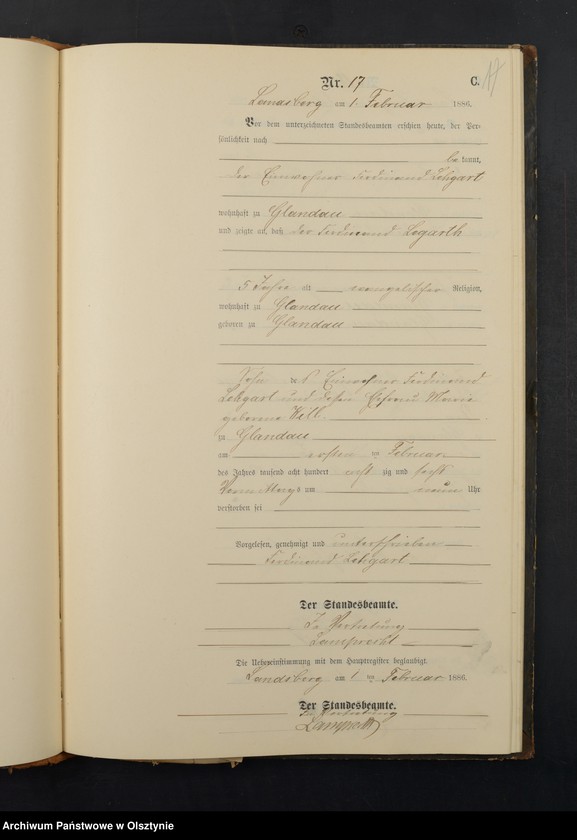 17
Nr. 17 C.
Landsberg am 1 Februar 1886.
Vor dem unterzeichneten Standesbeamten erschien heute, der Per-
sönlichkeit nach
be kannt,
der Einwohner Ferdinand Lehgart
wohnhaft zu Glandau
und zeigte an, daß der Ferdinand Legarth
5 Jahre alt evangelischer Religion,
wohnhaft zu Glandau
geboren zu Glandau
Sohn des Einwohner Ferdinand
Lehgart und dessen Ehefrau Marie
geborene Will
zu Glandau
am ersten Februar
des Jahres tausend acht hundert acht zig und sechs
Vormittags um neun Uhr
verstorben sei
Vorgelesen, genehmigt und unterschrieben
Ferdinand Lehgart
Der Standesbeamte.
In Vertretung
Lamprecht
Die Uebereinstimmung mit dem Hauptregister beglaubigt
Landsberg am 1 ten Februar 1886.
Der Standesbeamte.
In Vertretung
Lamprecht
Archiwum Państwowe w Olsztynie